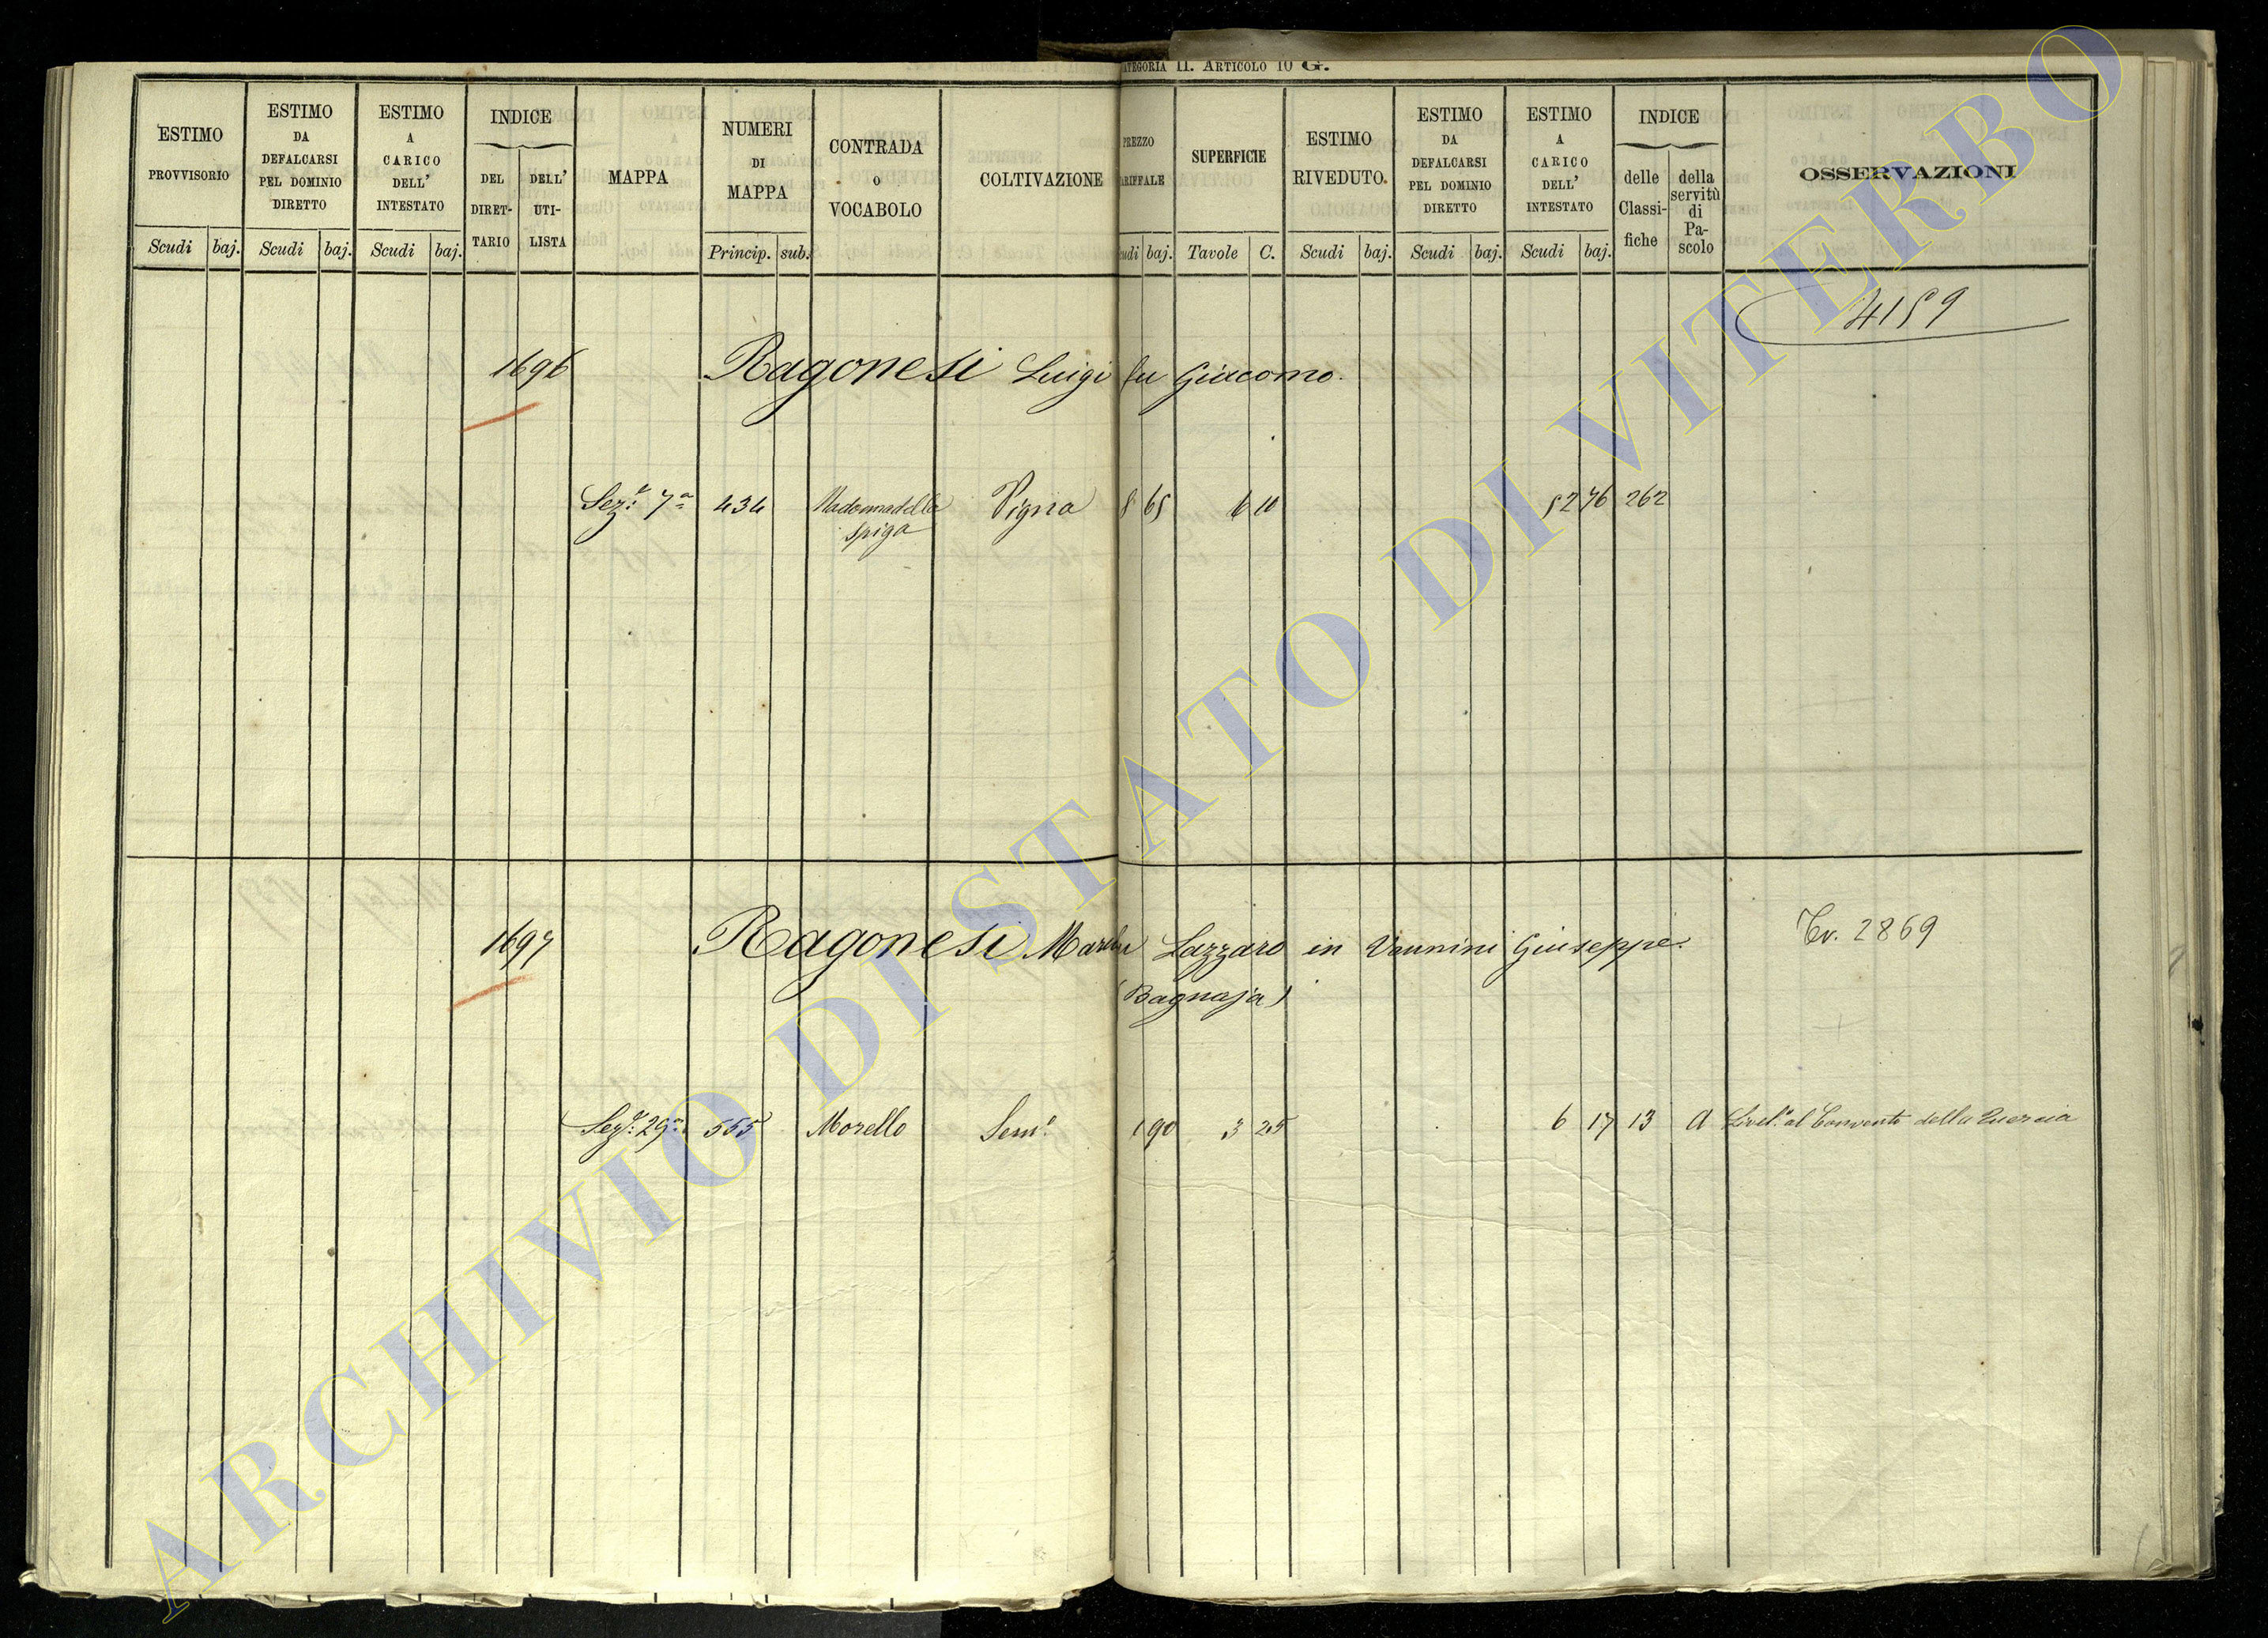 ATEGORIA II. ARTICOLO 10 G.
ESTIMO PROVVISORIO
Scudi baj.
ESTIMO DA DEFALCARSI PEL DOMINIO DIRETTO
Scudi baj.
ESTIMO A CARICO DELL' INTESTATO
Scudi baj.
INDICE
DEL DIRET-TARIO
DELL' UTI-LISTA
MAPPA
NUMERI DI MAPPA
Princip. sub.
CONTRADA O VOCABOLO
COLTIVAZIONE
PREZZO ARIFFALE
udi baj.
SUPERFICIE
Tavole C.
ESTIMO RIVEDUTO.
Scudi baj.
ESTIMO DA DEFALCARSI PEL DOMINIO DIRETTO
Scudi baj.
ESTIMO A CARICO DELL' INTESTATO
Scudi baj.
INDICE
delle Classi-fiche
della servitù di Pa-scolo
OSSERVAZIONI
4159
1696 Ragonesi Luigi fu Giacomo.
Sez.e 7a 434 Madonna della Vigna 8 65 6 10 52 76 262
Spiga
1697 Ragonesi fu Lazzaro in Vannini Giuseppe. Tv. 2869
(Bagnaja)
Sez.e 29a 555 Morello Sem.o 1 90 3 25 6 17 13 A Livel.o al Convento della Quercia
ARCHIVIO DI STATO DI VITERBO